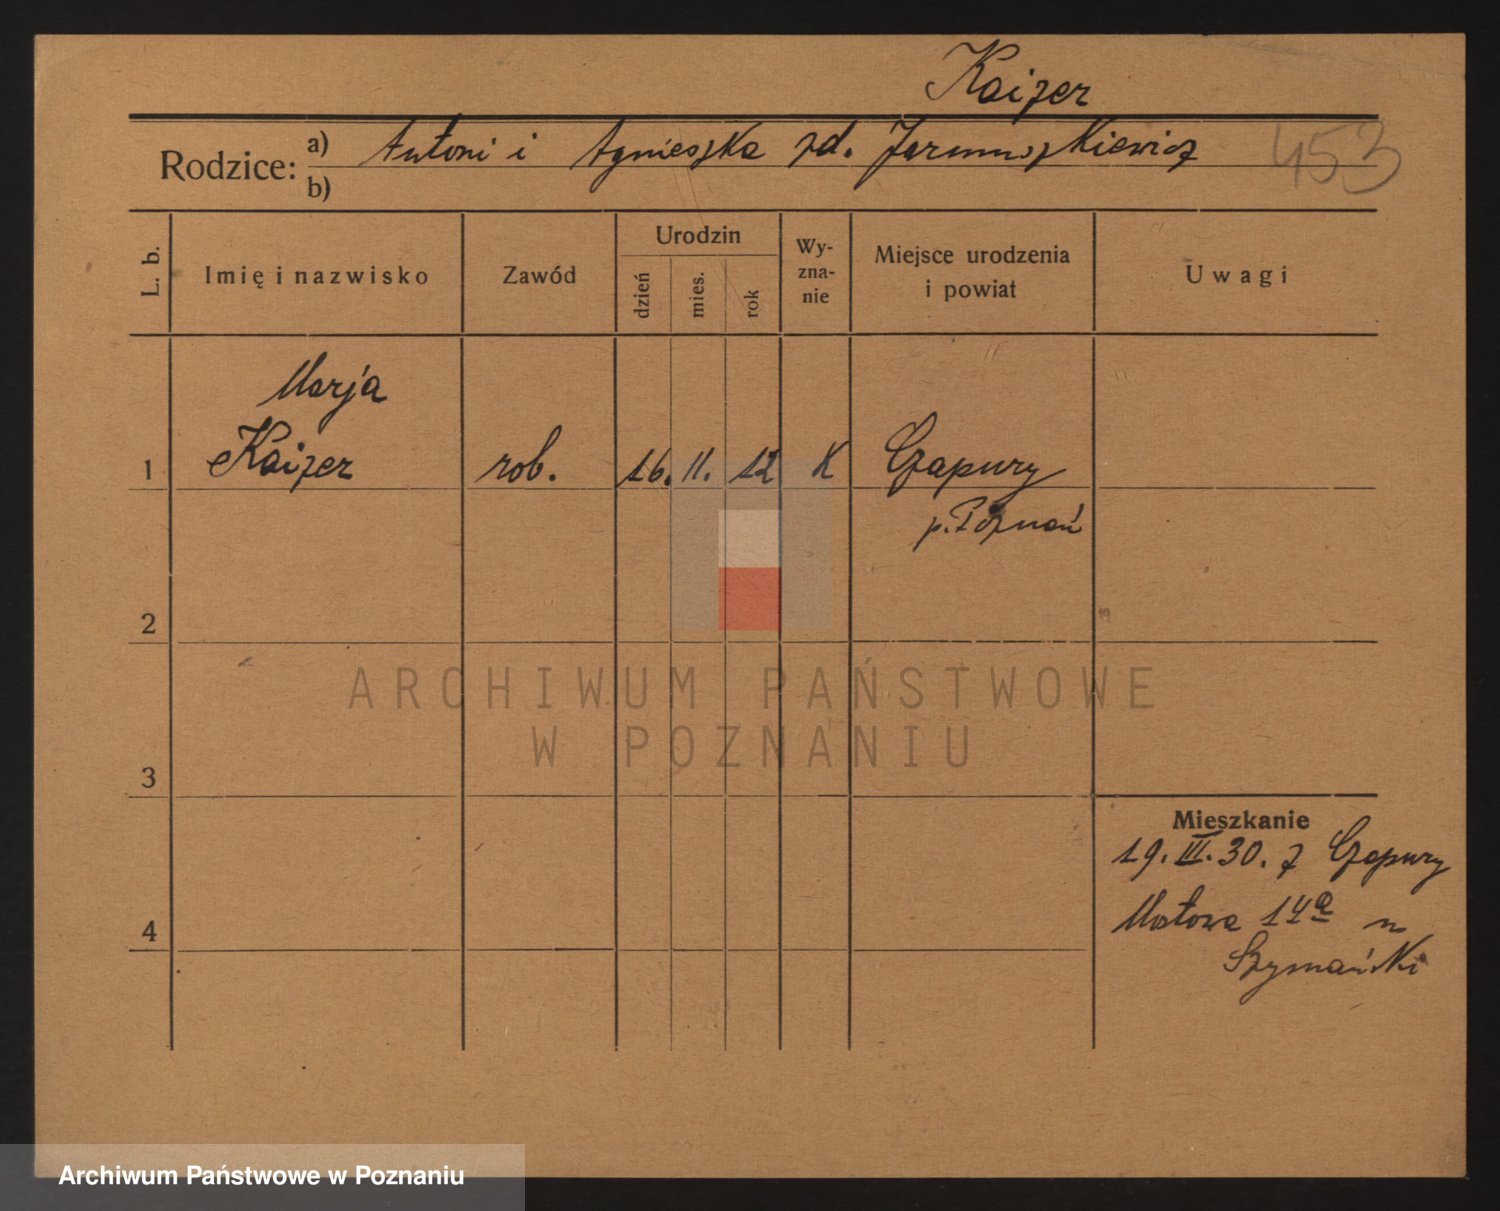 Kaizer
Rodzice: a) Antoni i Agnieszka zd. Jarmuszkiewicz
453
b)
L. b.
Imię i nazwisko
Zawód
Urodzin
dzień
mies.
rok
Wy-
zna-
nie
Miejsce urodzenia
i powiat
Uwagi
Marja
1 Kaizer rob. 16. 11. 12 K Czapury
p. Poznań
2
ARCHIWUM PAŃSTWOWE
W POZNANIU
3
Mieszkanie
19. III. 30. z Czapury
4 14a
Szymański
Archiwum Państwowe w Poznaniu